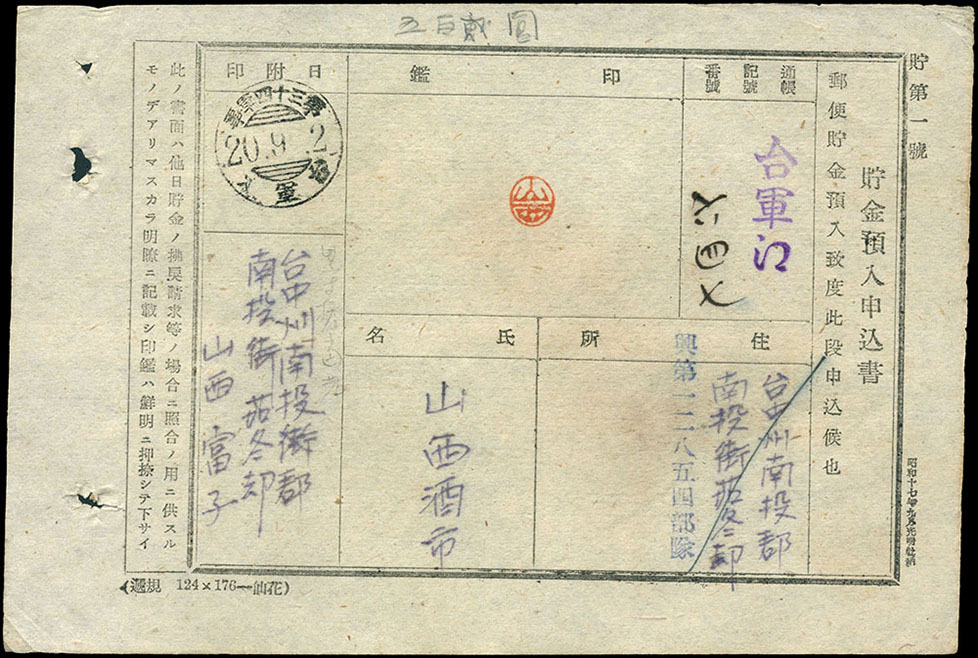 五百貳圓
貯第一號
貯金預入申込書
郵便貯金預入致度此段申込候也
通帳
記號
番號
台軍江
六四七
印鑑
日附印
第三十四軍事
20.9.2
台軍
住所
台中州南投郡
南投街茄苳却
興第一二八五四部隊
氏名
山西酒市
台中州南投街郡
南投街茄苳却
山西富子
此ノ書面ハ他日貯金ノ拂戾請求等ノ場合ニ照合ノ用ニ供スル
モノデアリマスカラ明瞭ニ記載シ印鑑ハ鮮明ニ押捺シテ下サイ
(遞規 124×176—仙花)